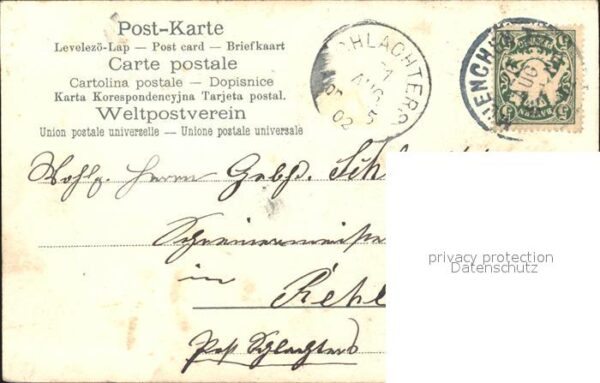 Post-Karte
Levelező-Lap — Post card — Briefkaart
Carte postale
Cartolina postale — Dopisnice
Karta Korespondencyjna Tarjeta postal.
Weltpostverein
Union postale universelle — Unione postale universale
SCHLACHTERS
AUG
02
MUENCHEN
AUG
BAYERN
Wohlg. Herrn Gebh. Sch
Schreinermeister
in
Post Schlachters
privacy protection
Datenschutz